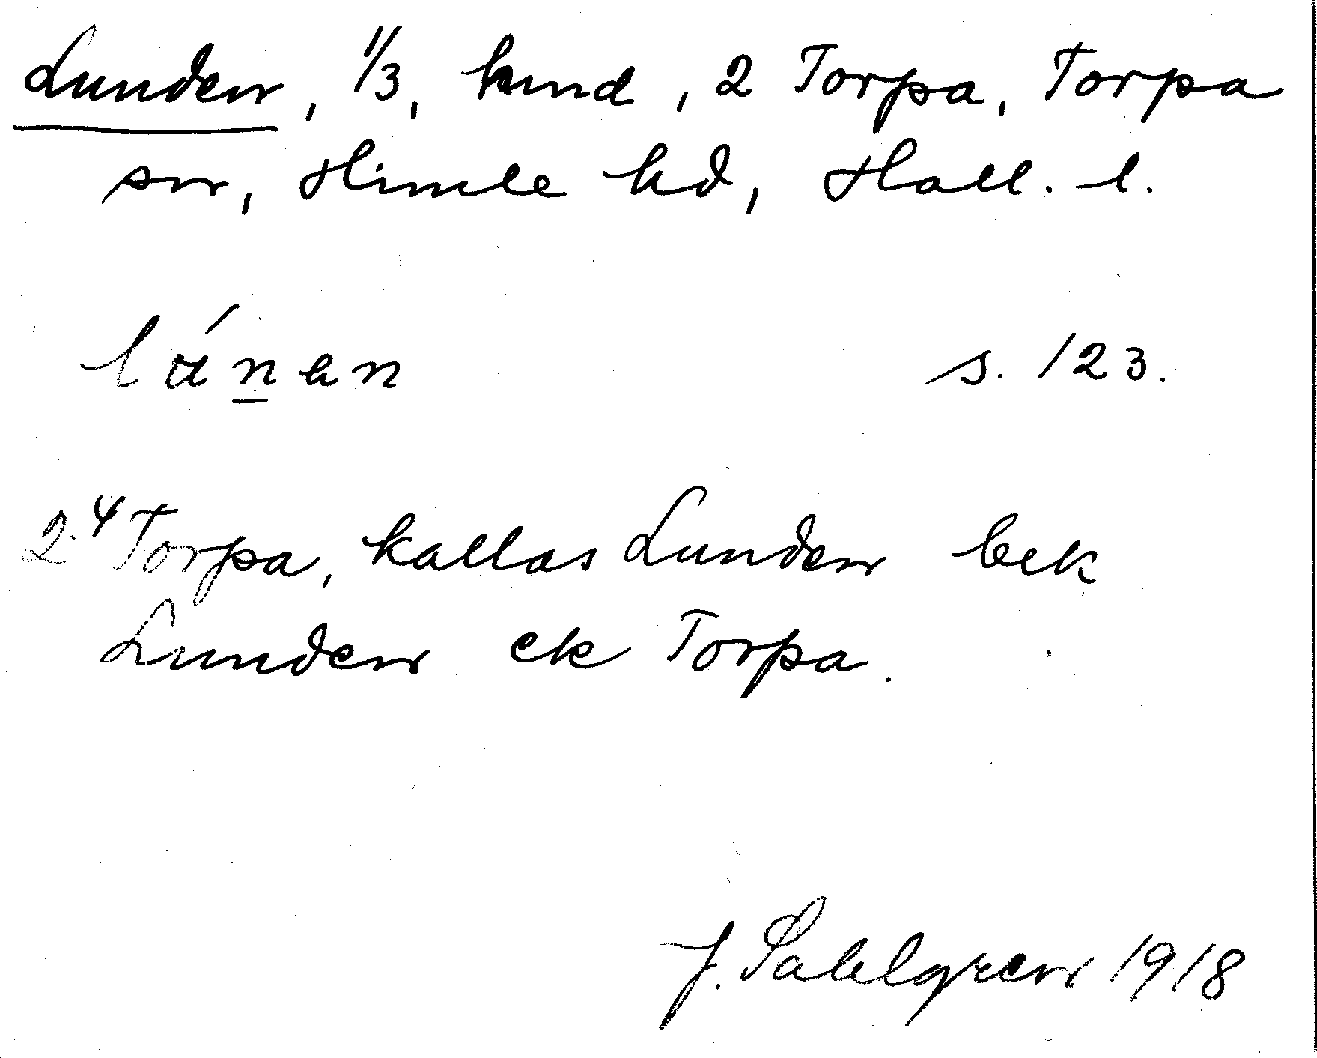 Lunden, 1/3, hmd, 2 Torpa, Torpa
sn, Himle hd, Hall. l.
lúnan s. 123.
2⁴ Torpa, kallas Lunden bek
Lunden ek Torpa.
J. Sahlgren 1918